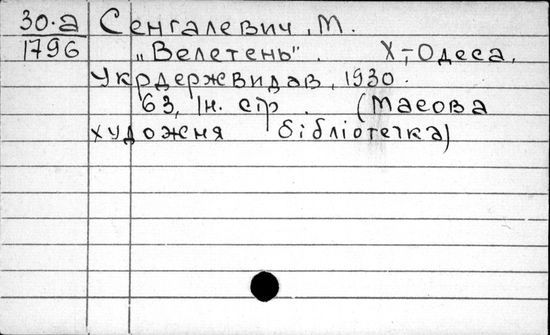 30.а Сенгалевич, М.
1796 „Велетень". Х.-Одеса,
Укрдержвидав, 1930.
63, Ін. стр. (Масова
художня бібліотечка)